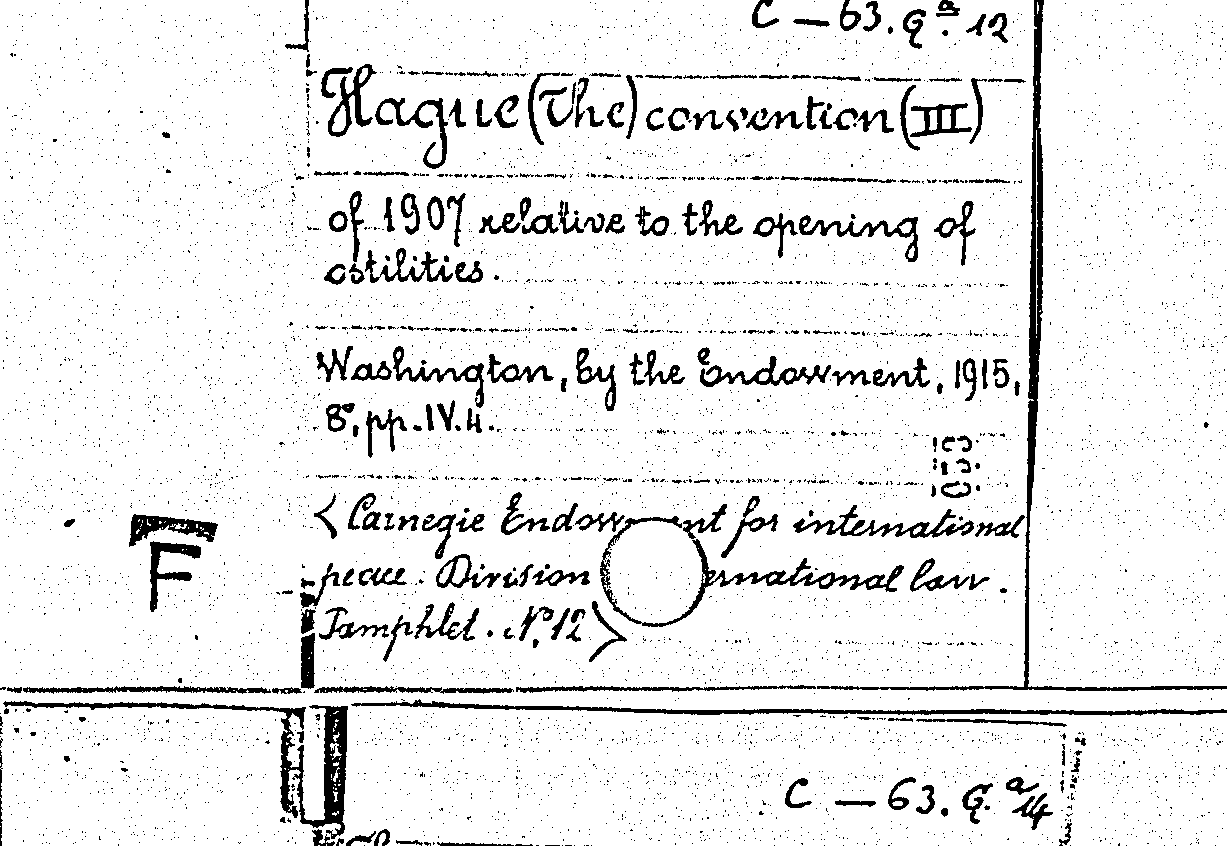 C — 63. G.ª 12
Hague (The) convention (III)
of 1907 relative to the opening of
ostilities.
Washington, by the Endowment, 1915,
8°, pp. IV. 4.
053
< Carnegie Endow ent for international
peace. Division ernational law.
Pamphlet. N.° 12 >
F
C — 63. G. a/14